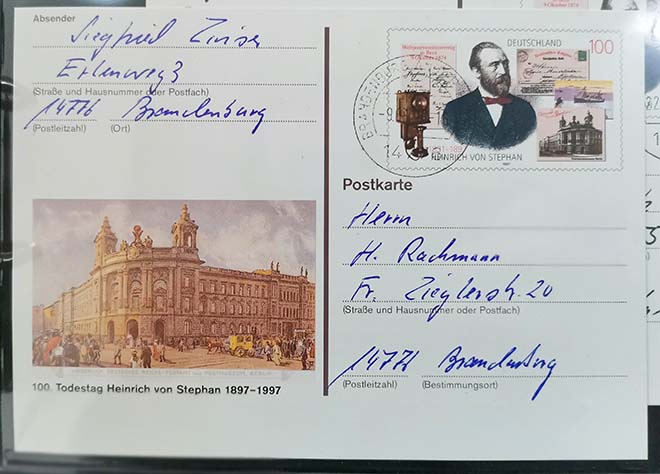 Absender
Siegfried Zinser
Erlenweg 3
(Straße und Hausnummer oder Postfach)
14776 Brandenburg
(Postleitzahl) (Ort)
DEUTSCHLAND 100
Weltpostvereinsvertrag
in Bern
9. Oktober 1874
HEINRICH VON STEPHAN
1997
Postkarte
Herrn
H. Rachmann
Fr. Zieglerstr. 20
(Straße und Hausnummer oder Postfach)
14776 Brandenburg
(Postleitzahl) (Bestimmungsort)
100. Todestag Heinrich von Stephan 1897–1997